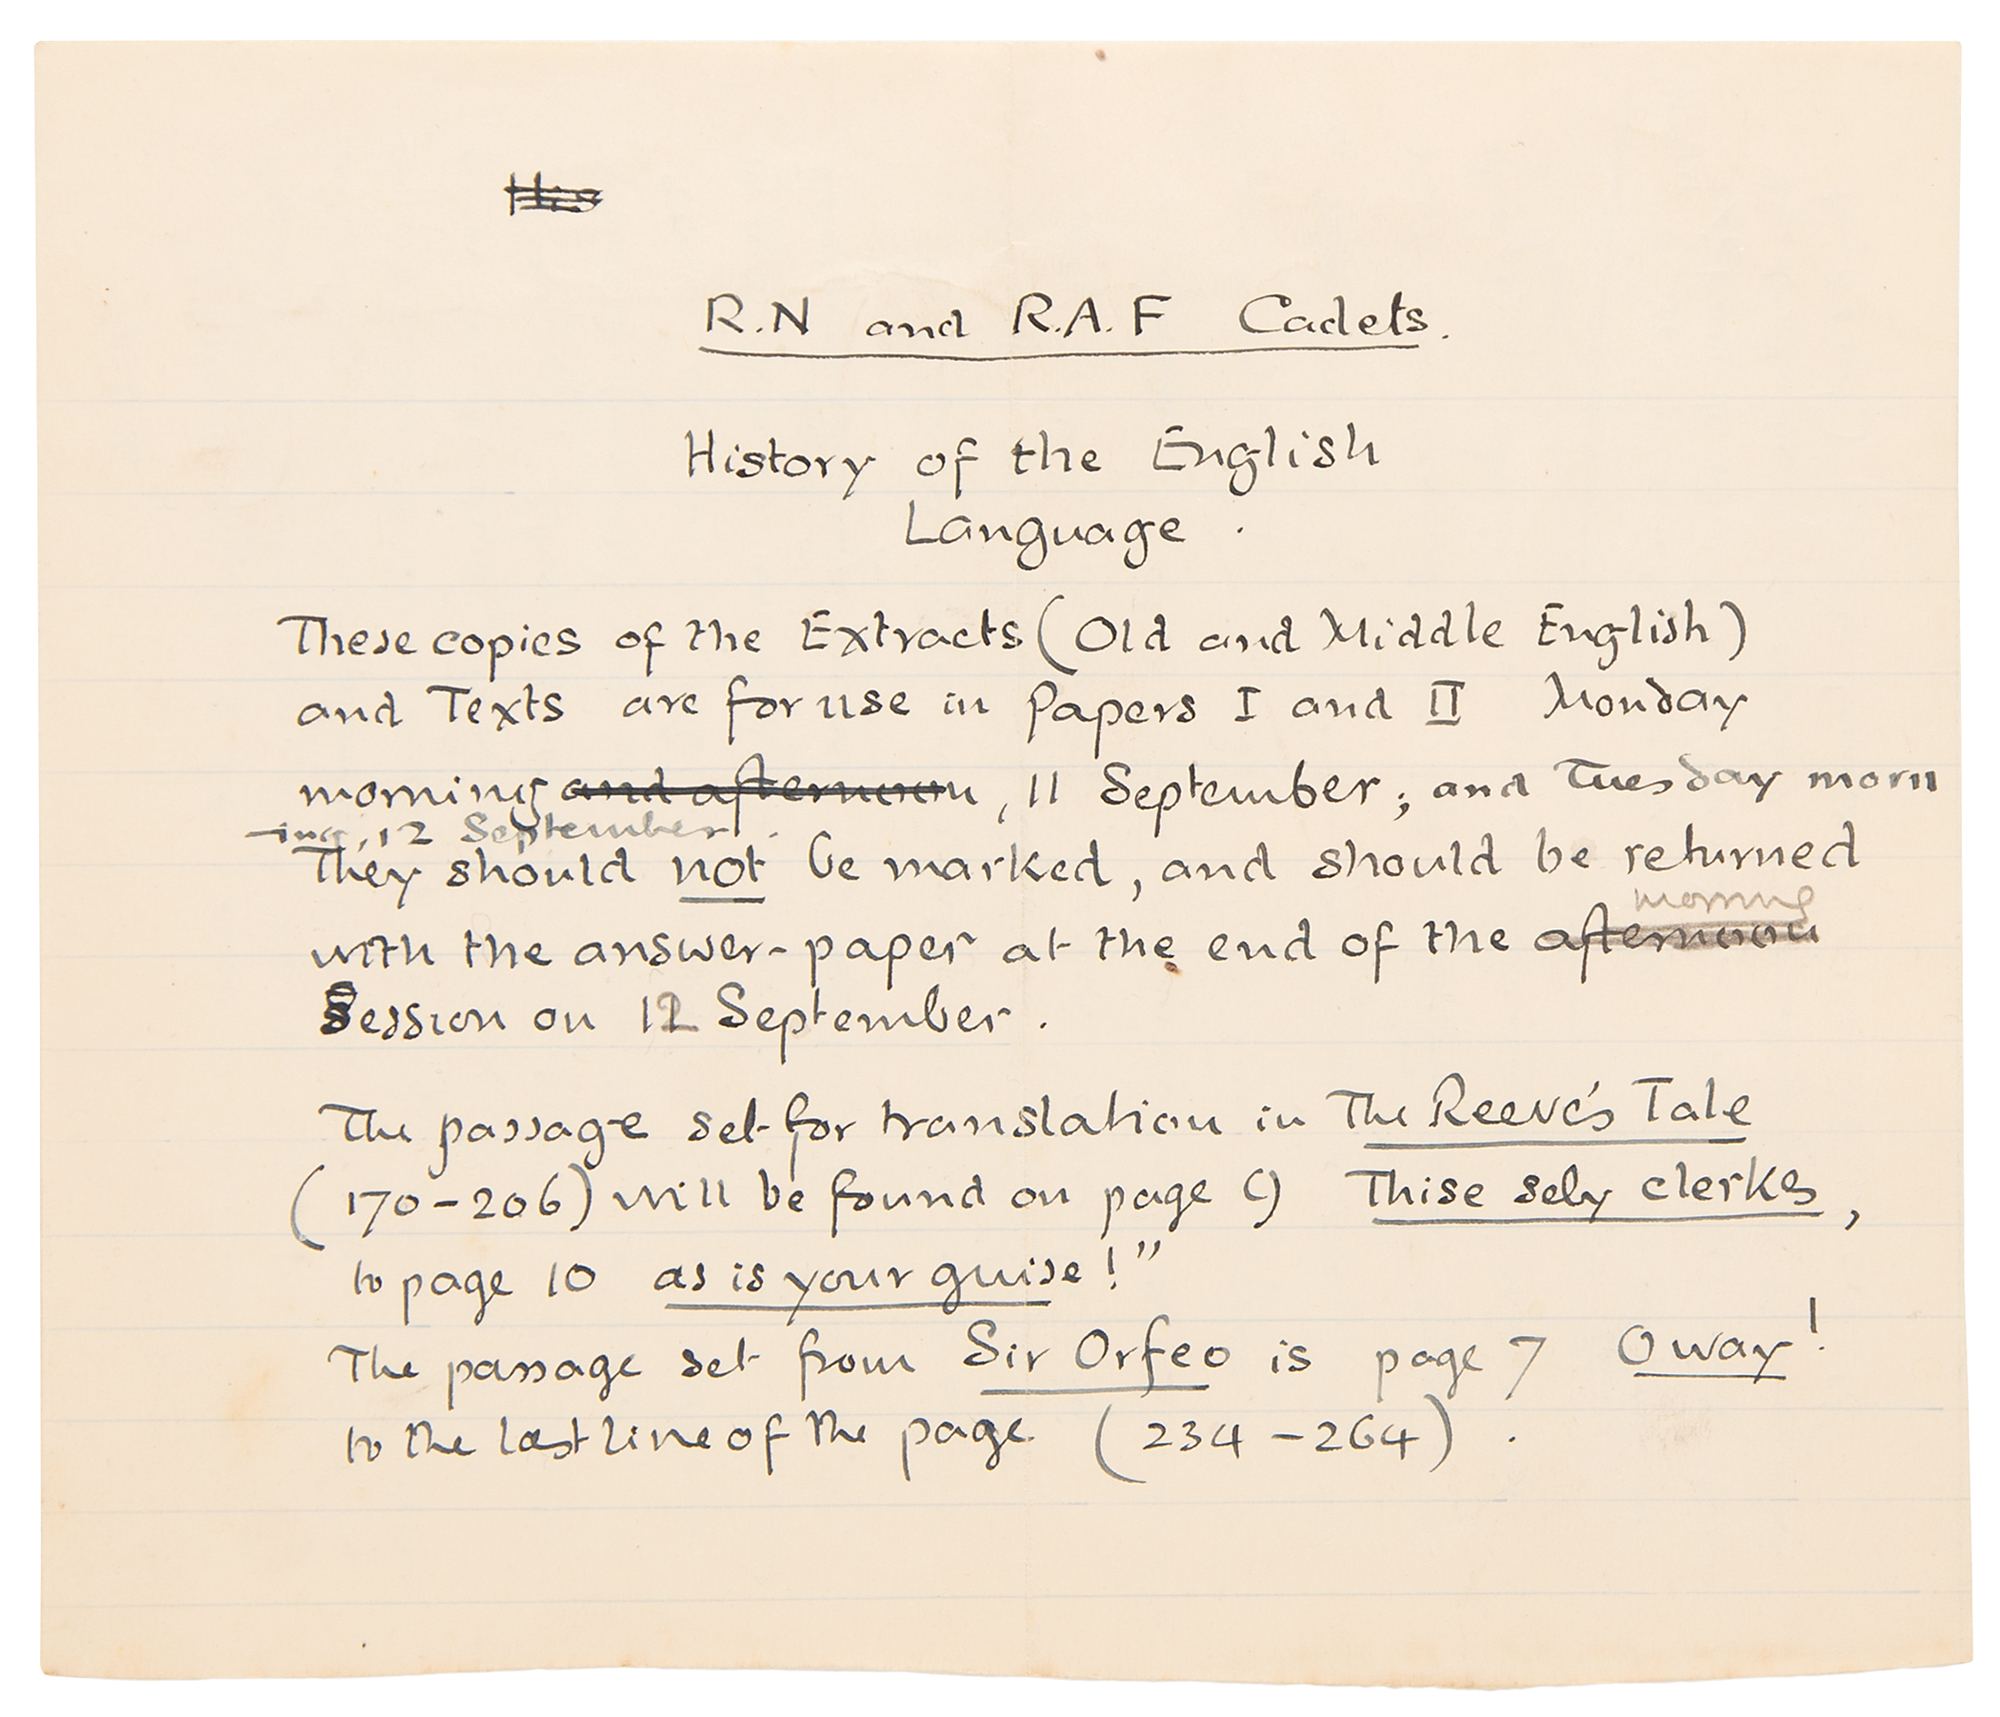 His
R.N and R.A.F Cadets.
History of the English
Language.
These copies of the Extracts (Old and Middle English)
and Texts are for use in Papers I and II Monday
morning and afternoon, 11 September; and Tuesday morn
-ing, 12 September.
They should not be marked, and should be returned
morning
with the answer-paper at the end of the afternoon
Session on 12 September.
The passage set for translation in The Reeve's Tale
(170-206) will be found on page 9 Thise sely clerkes,
to page 10 as is your guise!"
The passage set from Sir Orfeo is page 7 O way!
to the last line of the page (234-264).